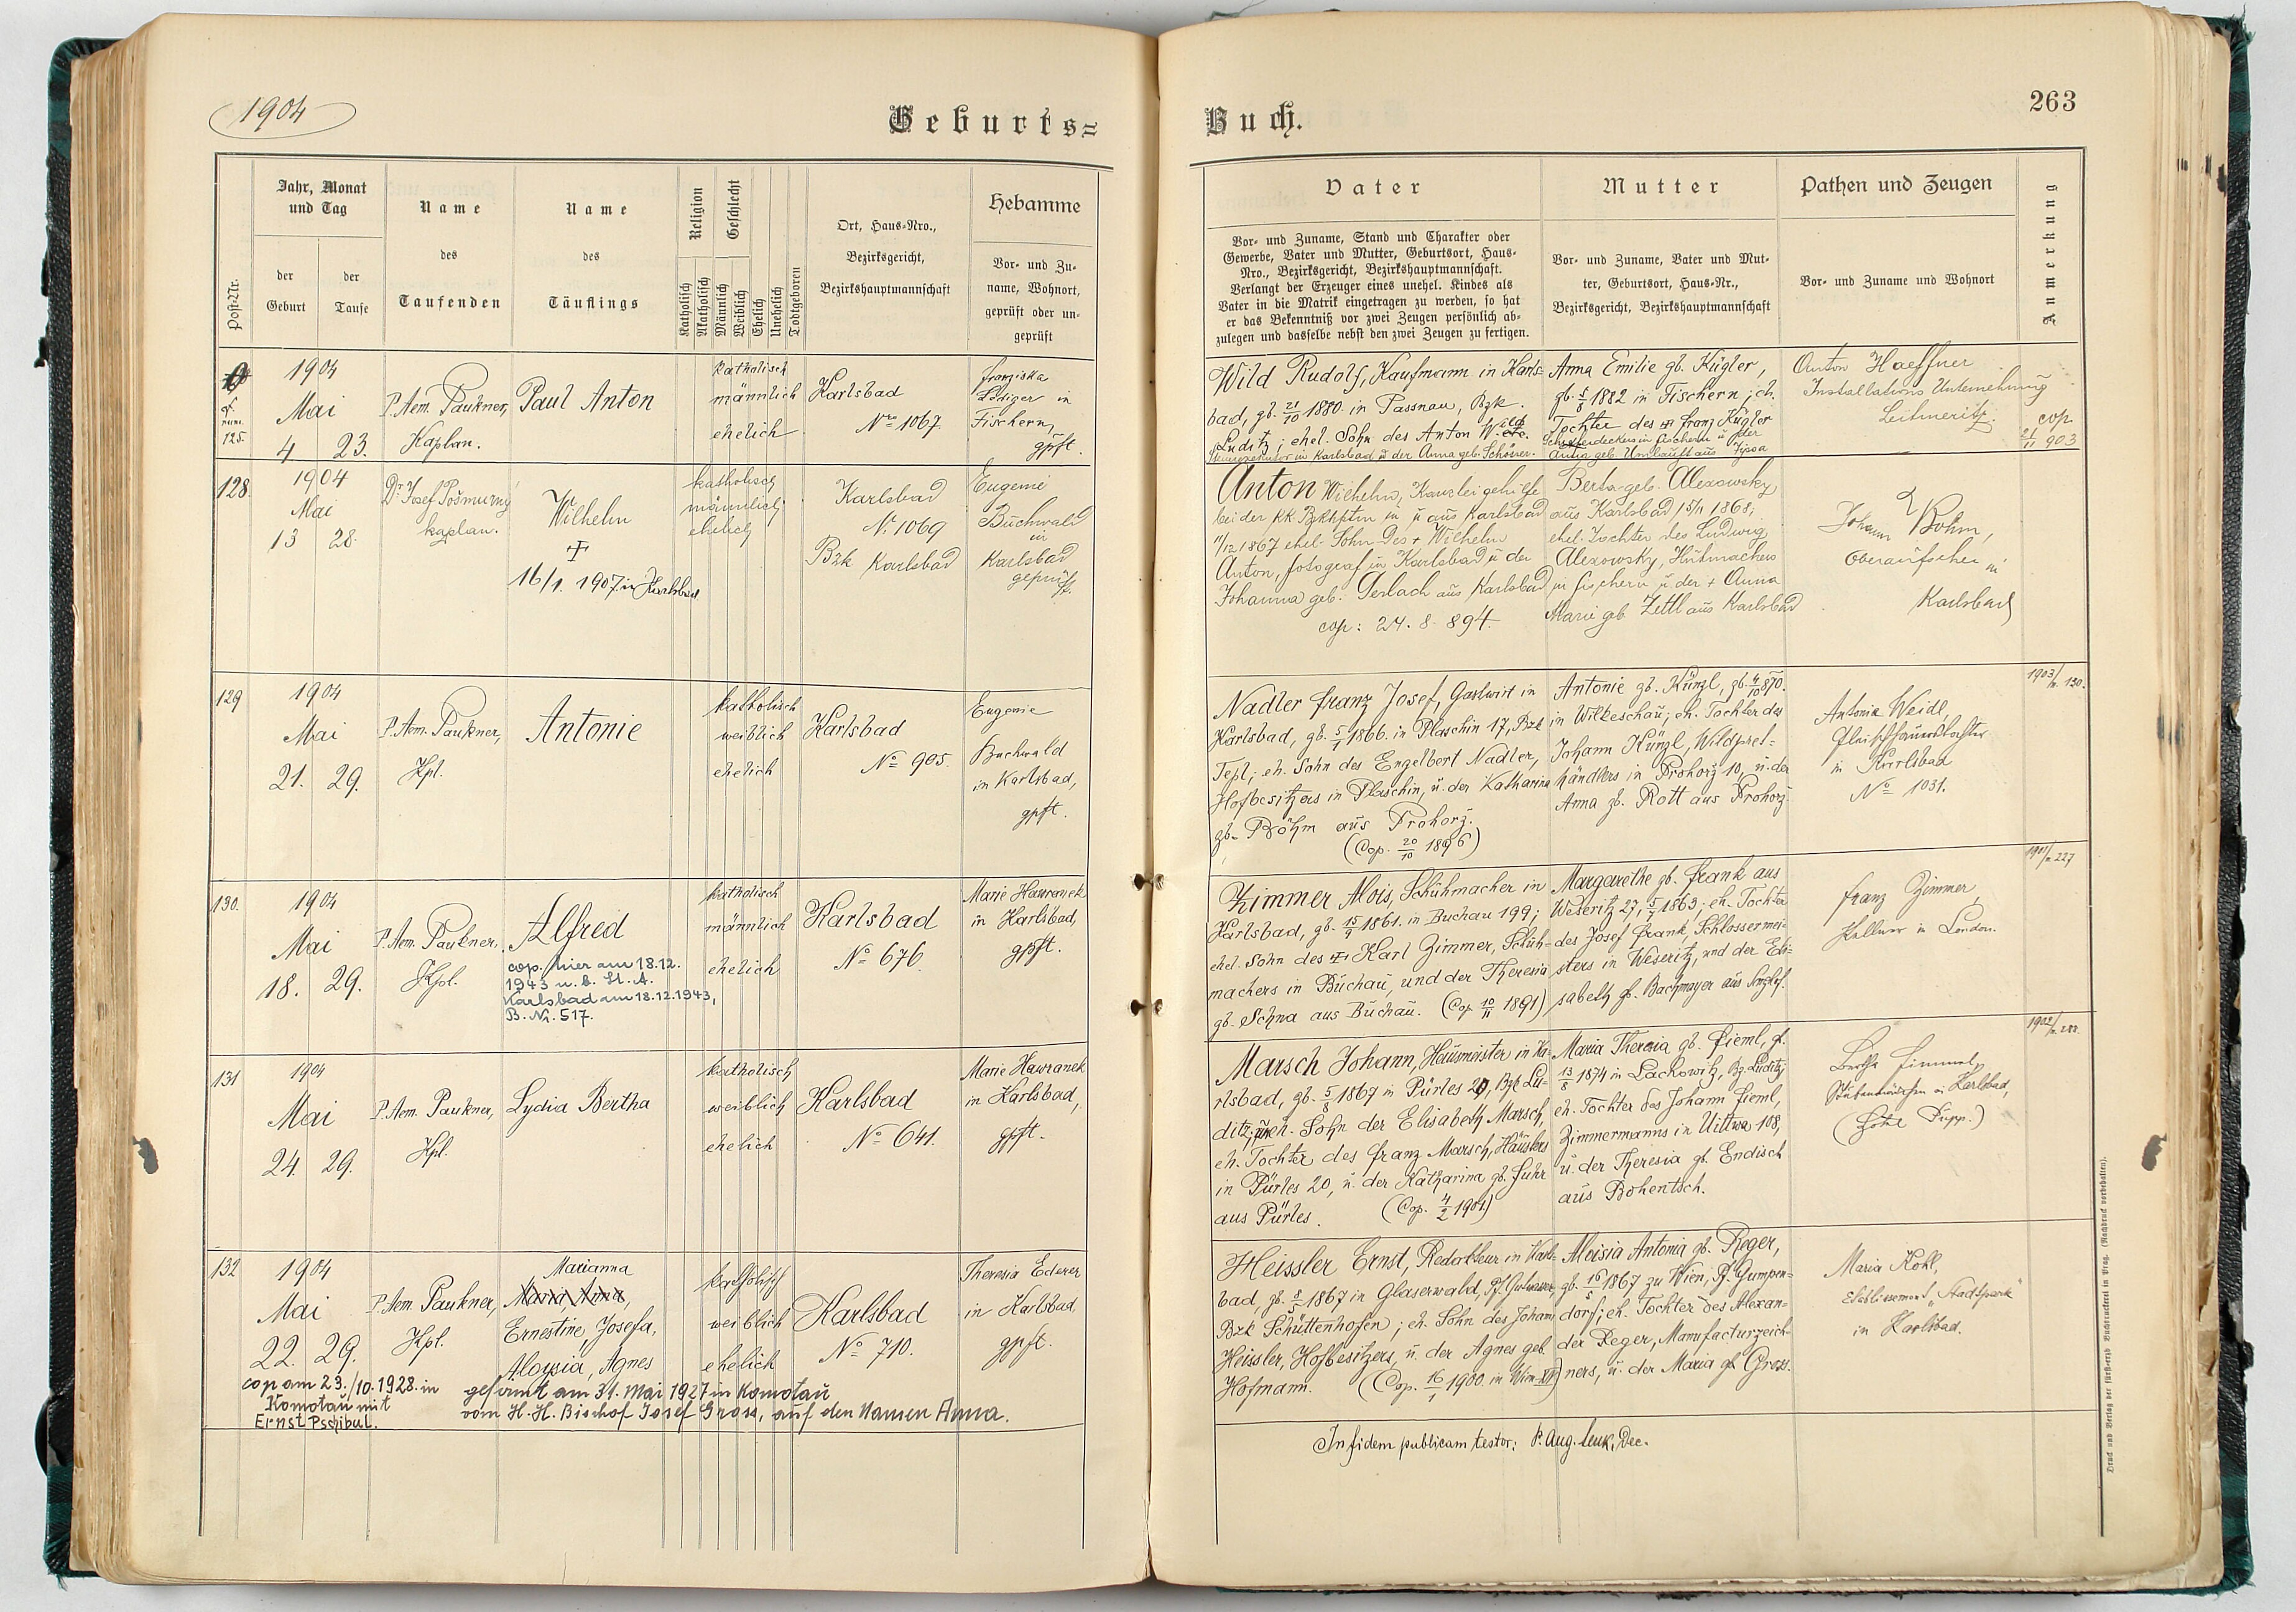 1904
Geburts=
Post-Nr.
Jahr, Monat
und Tag
der
Geburt
der
Taufe
Name
des
Taufenden
Name
des
Täuflings
Religion
Katholisch
Akatholisch
Geschlecht
Männlich
Weiblich
Ehelich
Unehelich
Todtgeboren
Ort, Haus-Nro.,
Bezirksgericht,
Bezirkshauptmannschaft
Hebamme
Vor- und Zu-
name, Wohnort,
geprüft oder un-
geprüft
125.
1904
Mai
4 23.
P. Aem. Paukner,
Kaplan.
Paul Anton
katholisch
männlich
ehelich
Karlsbad
Nro 1067.
Franziska
in
Fischern,
gpft.
128.
1904
Mai
13 28.
Dr. Josef Pošmurný
kaplan.
Wilhelm
16/1. 1907 in Karlsbad
katholisch
männlich
ehelich
Karlsbad
No 1069
Bzk Karlsbad
Eugenie
Buchwald
in
Karlsbad
geprüft.
129
1904
Mai
21. 29.
P. Aem. Paukner,
Kpl.
Antonie
katholisch
weiblich
ehelich
Karlsbad
No 905.
Eugenie
Buchwald
in Karlsbad,
gpft.
130.
1904
Mai
18. 29.
P. Aem. Paukner,
Kpl.
Alfred
cop. hier am 18.12.
1943 u. b. St. A.
Karlsbad am 18.12.1943,
B. Nr. 517.
katholisch
männlich
ehelich
Karlsbad
No 676.
Marie Hawranek
in Karlsbad,
gpft.
131
1904
Mai
24. 29.
P. Aem. Paukner,
Kpl.
Lydia Bertha
katholisch
weiblich
ehelich
Karlsbad
No 641.
Marie Hawranek
in Karlsbad,
gpft.
132
1904
Mai
22. 29.
P. Aem. Paukner,
Kpl.
Marianna
Maria, Anna,
Ernestine, Josefa,
Aloysia, Agnes
katholisch
weiblich
ehelich
Karlsbad
No 710.
Theresia Ederer
in Karlsbad.
gpft.
cop am 23./10.1928. in
Komotau mit
Ernst Pschibul.
gefirmt am 31. Mai 1927 in Komotau
vom H. H. Bischof Josef Gross, auf den Namen Anna.
Buch.
263
Vater
Vor- und Zuname, Stand und Charakter oder
Gewerbe, Vater und Mutter, Geburtsort, Haus-
Nro., Bezirksgericht, Bezirkshauptmannschaft.
Verlangt der Erzeuger eines unehel. Kindes als
Vater in die Matrik eingetragen zu werden, so hat
er das Bekenntniß vor zwei Zeugen persönlich ab-
zulegen und dasselbe nebst den zwei Zeugen zu fertigen.
Mutter
Vor- und Zuname, Vater und Mut-
ter, Geburtsort, Haus-Nr.,
Bezirksgericht, Bezirkshauptmannschaft
Pathen und Zeugen
Vor- und Zuname und Wohnort
Anmerkung
Wild Rudolf, Kaufmann in Karls-
bad, gb. 21/10 1880. in Passnau, Bzk.
Luditz; ehel. Sohn des Anton Wild
in Karlsbad u der Anna geb. Schöner.
Anna Emilie gb. Kügler,
gb. 5/8 1882 in Fischern; eh.
Tochter des Franz Kügler
in Fischern u der
Anna geb Umlauft aus
Anton Haeffner
Installations Unternehmung
Leitmeritz.
cop.
21/11 903
Anton Wilhelm, Kanzleigehilfe
bei der kk. Bzkhptm in u aus Karlsbad
11/12 1867 ehel. Sohn des + Wilhelm
Anton, fotograf in Karlsbad u der
Johanna geb. Gerlach aus Karlsbad
cop: 24. 8. 894.
Berta geb. Alexowsky
aus Karlsbad 15/1 1868;
ehel. Tochter des Ludwig
Alexowsky, Hutmachers
in Fischern u der + Anna
Marie geb Zettl aus Karlsbad
Johann Böhm,
Oberaufseher in
Karlsbad
Nadler Franz Josef, Gastwirt in
Karlsbad, gb. 5/1 1866. in Plaschin 17, Bzk
Tepl; eh. Sohn des Engelbert Nadler,
Hofbesitzers in Plaschin, u. der Katharina
gb. Böhm aus Prohorz.
(Cop. 20/10 1896)
Antonie gb. Künzl, gb. 4/10 870.
in Wilkeschau; eh. Tochter des
Johann Künzl, Wildpret-
händlers in Prohorz 10, u. der
Anna gb. Rott aus Prohorz.
Antonie Weidl,
Fleischhauerstochter
in Karlsbad
No 1031.
1903/n. 130.
Zimmer Alois, Schuhmacher in
Karlsbad, gb. 15/9 1861. in Buchau 199;
ehel. Sohn des Karl Zimmer, Schuh-
machers in Buchau, und der Theresia
gb. Schna aus Buchau. (Cop. 10/11 1891)
Margarethe gb. Frank aus
Weseritz 27, 5/7 1863; eh. Tochter
des Josef Frank, Schlossermei-
sters in Weseritz, und der Eli-
sabeth gb. Bachmayer aus
Franz Zimmer,
Kellner in London.
1901/n. 227
Marsch Johann, Hausmeister in Ka-
rlsbad, gb. 5/8 1867 in Pürles 20, Bzk Lu-
ditz; uneh. Sohn der Elisabeth Marsch,
eh. Tochter des Franz Marsch, Häuslers
in Pürles 20, u. der Katharina gb. Fuhr
aus Pürles. (Cop. 4/2 1901)
Maria Theresia gb. Fieml, gb.
13/8 1874 in Lachowitz, Bz. Luditz,
eh. Tochter des Johann Fieml,
Zimmermanns in Uittwa 108,
u. der Theresia gb. Endisch
aus Bohentsch.
Bertha
Stubenmädchen in Karlsbad,
(Hotel Pupp.)
Heissler Ernst, Redakteur in Karls-
bad, gb. 8/5 1867 in Glaserwald, Pf.
Bzk Schüttenhofen; eh. Sohn des Johann
Heissler, Hofbesitzers, u. der Agnes geb
Hofmann. (Cop. 16/1 1900. in Wien
Aloisia Antonia gb. Reger,
gb. 16/5 1867 zu Wien, Pf. Gumpen-
dorf; eh. Tochter des Alexan-
der Reger, Manufacturzeich-
ners, u. der Maria gb Gross.
Maria Kohl,
Etablissement „Stadtpark"
in Karlsbad.
In fidem publicam testor: P. Aug. Dec.
Druck und Verlag der fürsterzb Buchdruckerei in Prag. (Nachdruck vorbehalten).